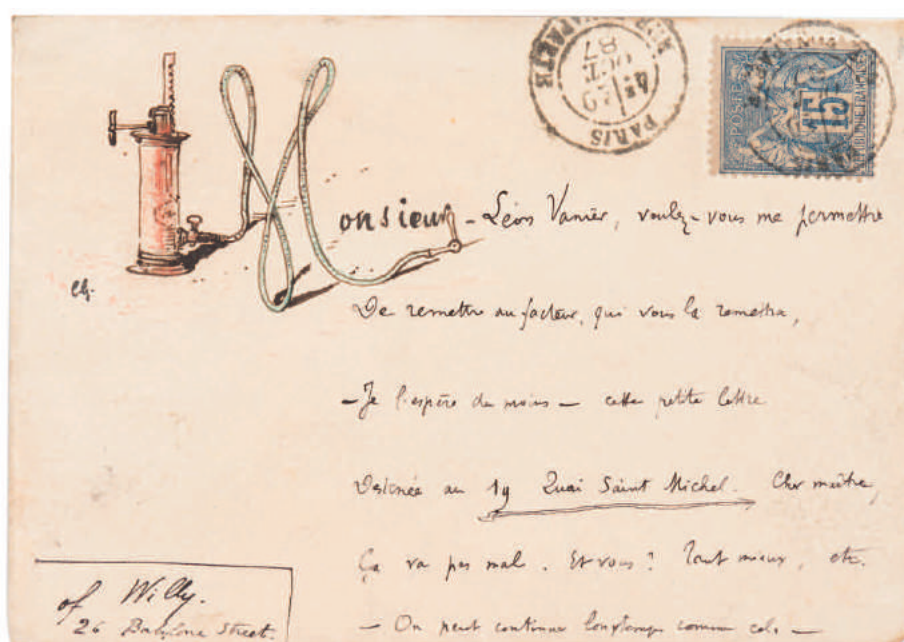 PARIS
4E
29
OCT.
87
POSTES
15
REPUBLIQUE FRANCAISE
Monsieur - Léon Vanier, voulez-vous me permettre
De remettre au facteur, qui vous la remettra,
- Je l'espère du moins - cette petite lettre
Destinée au 19 Quai Saint Michel. Cher maître,
Ça va pas mal. Et vous? Tant mieux, etc.
- On peut continuer longtemps comme cela -
of Willy.
26 Babylone Street.